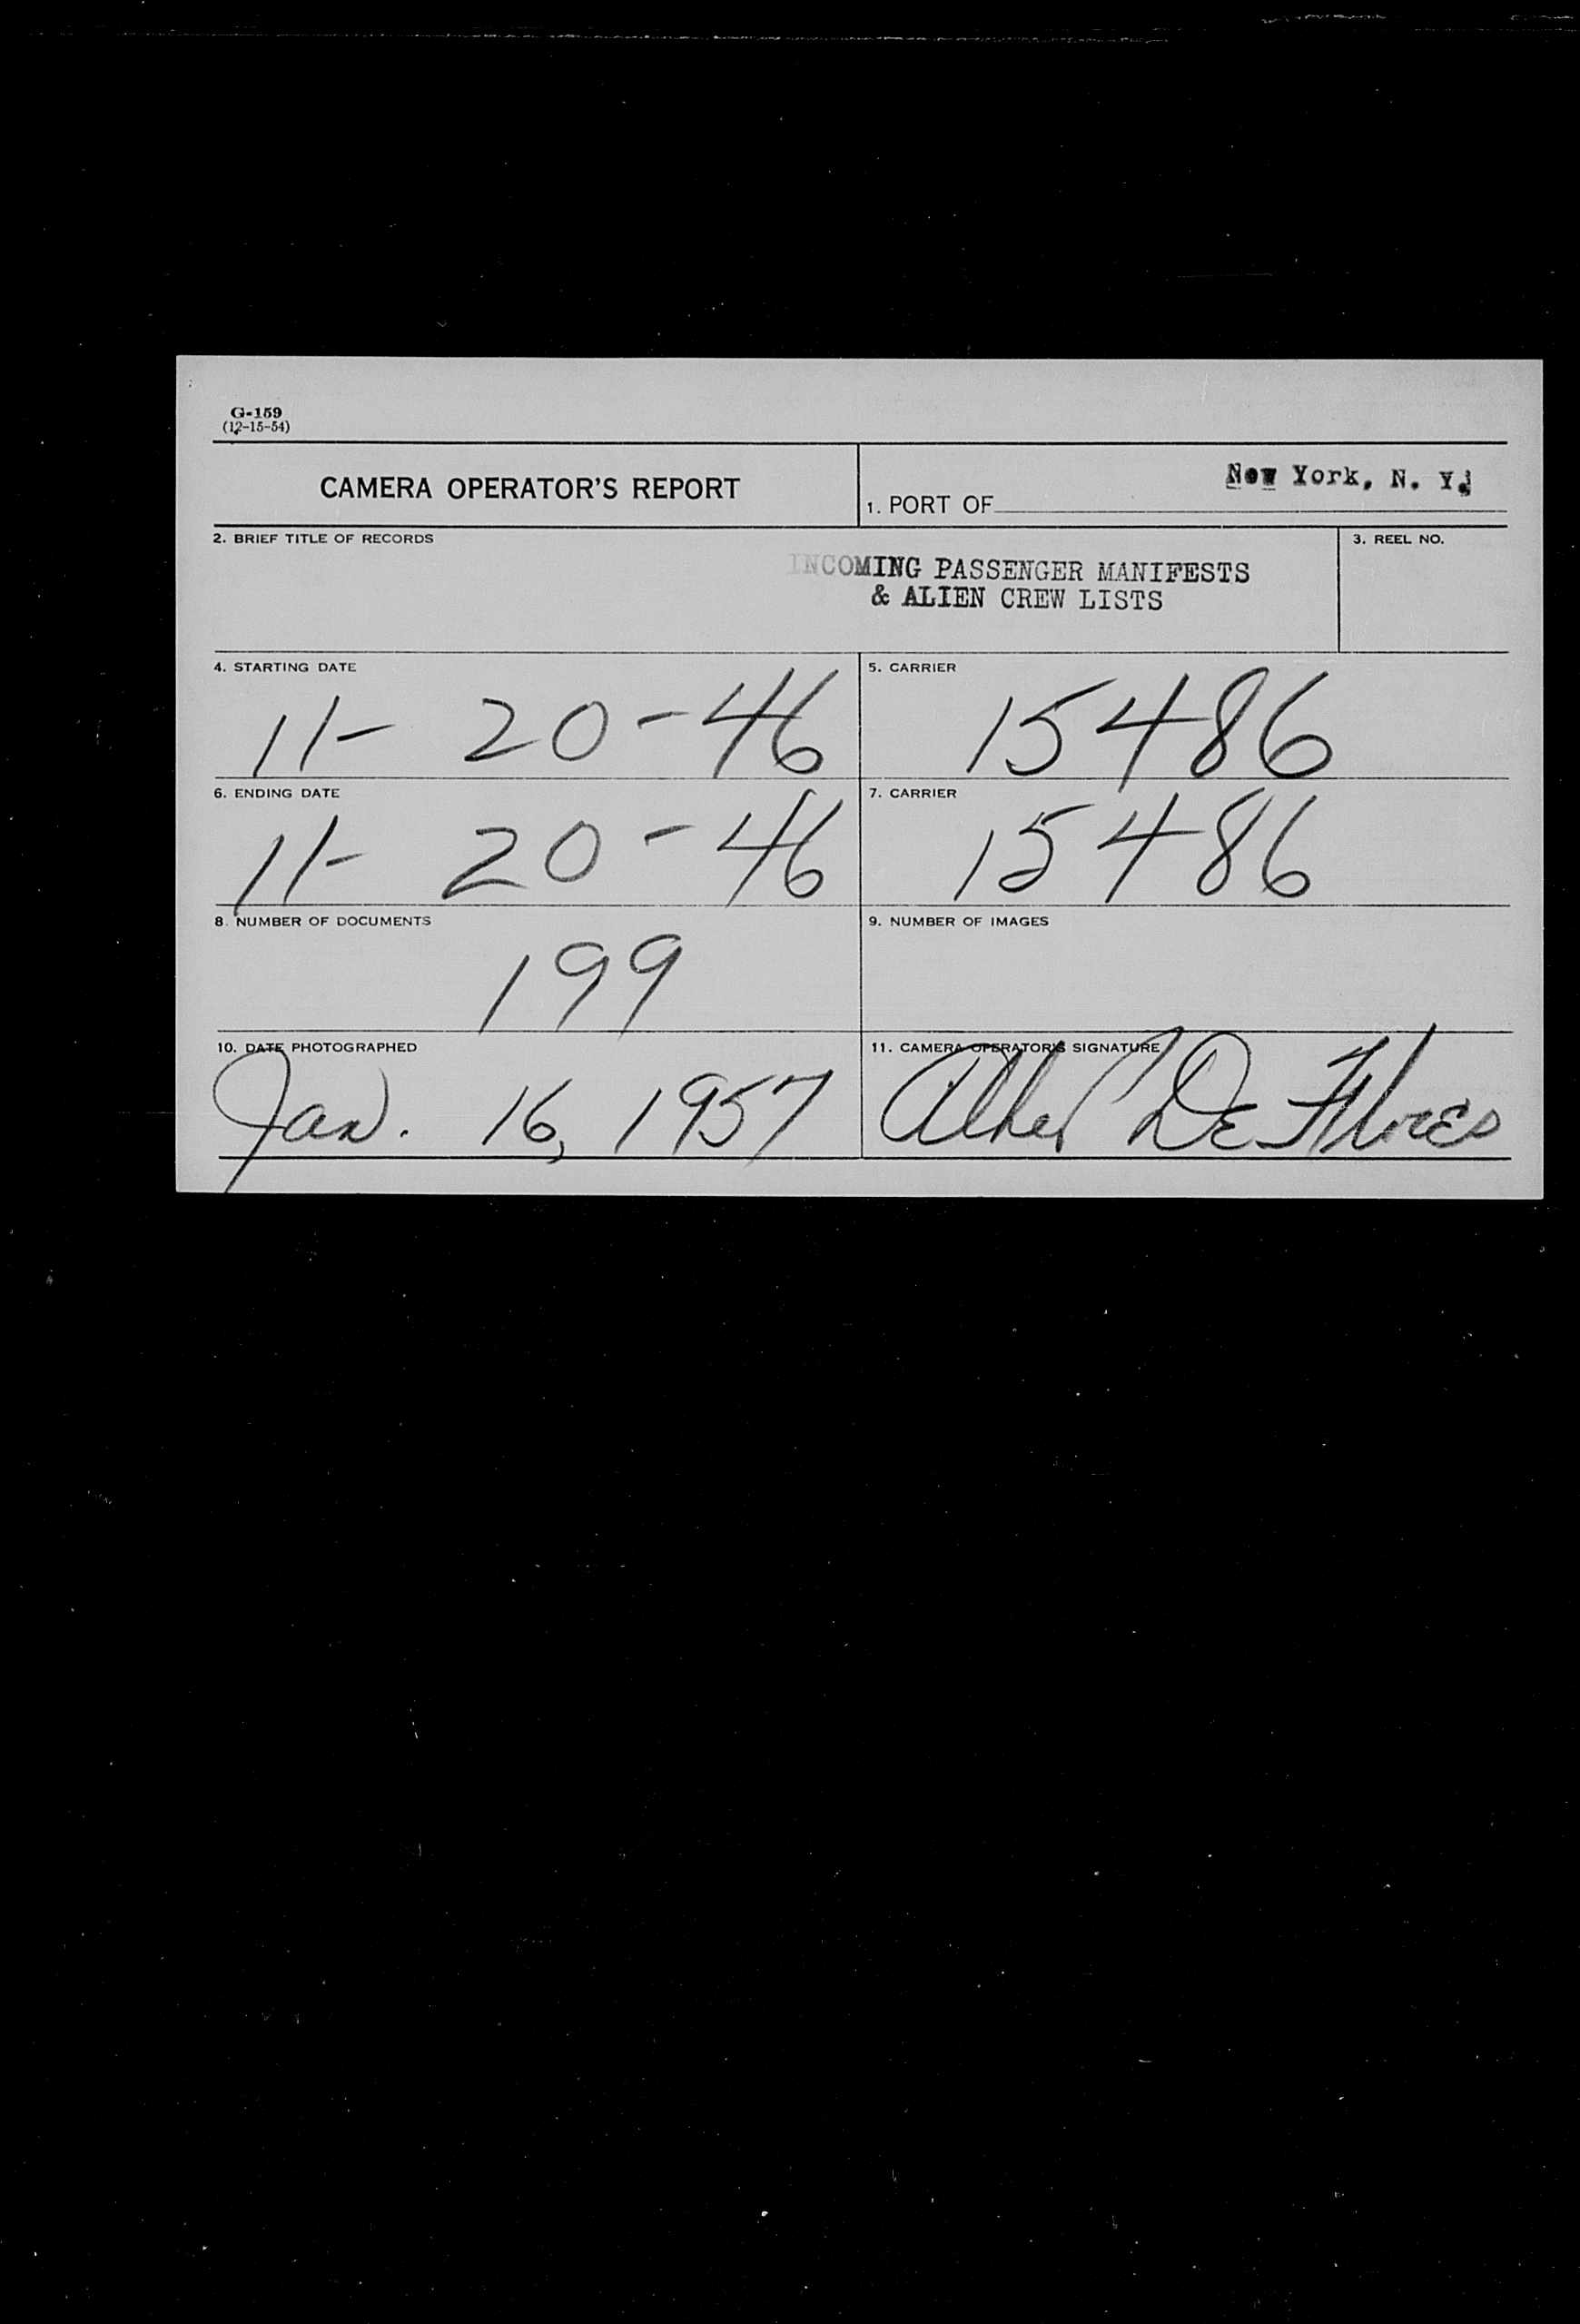 G-159
(12-15-54)
CAMERA OPERATOR'S REPORT
1. PORT OF New York, N. Y.
2. BRIEF TITLE OF RECORDS
INCOMING PASSENGER MANIFESTS
& ALIEN CREW LISTS
3. REEL NO.
4. STARTING DATE
11- 20-46
5. CARRIER
15486
6. ENDING DATE
11- 20-46
7. CARRIER
15486
8. NUMBER OF DOCUMENTS
199
9. NUMBER OF IMAGES
10. DATE PHOTOGRAPHED
Jan. 16, 1957
11. CAMERA OPERATOR'S SIGNATURE
De